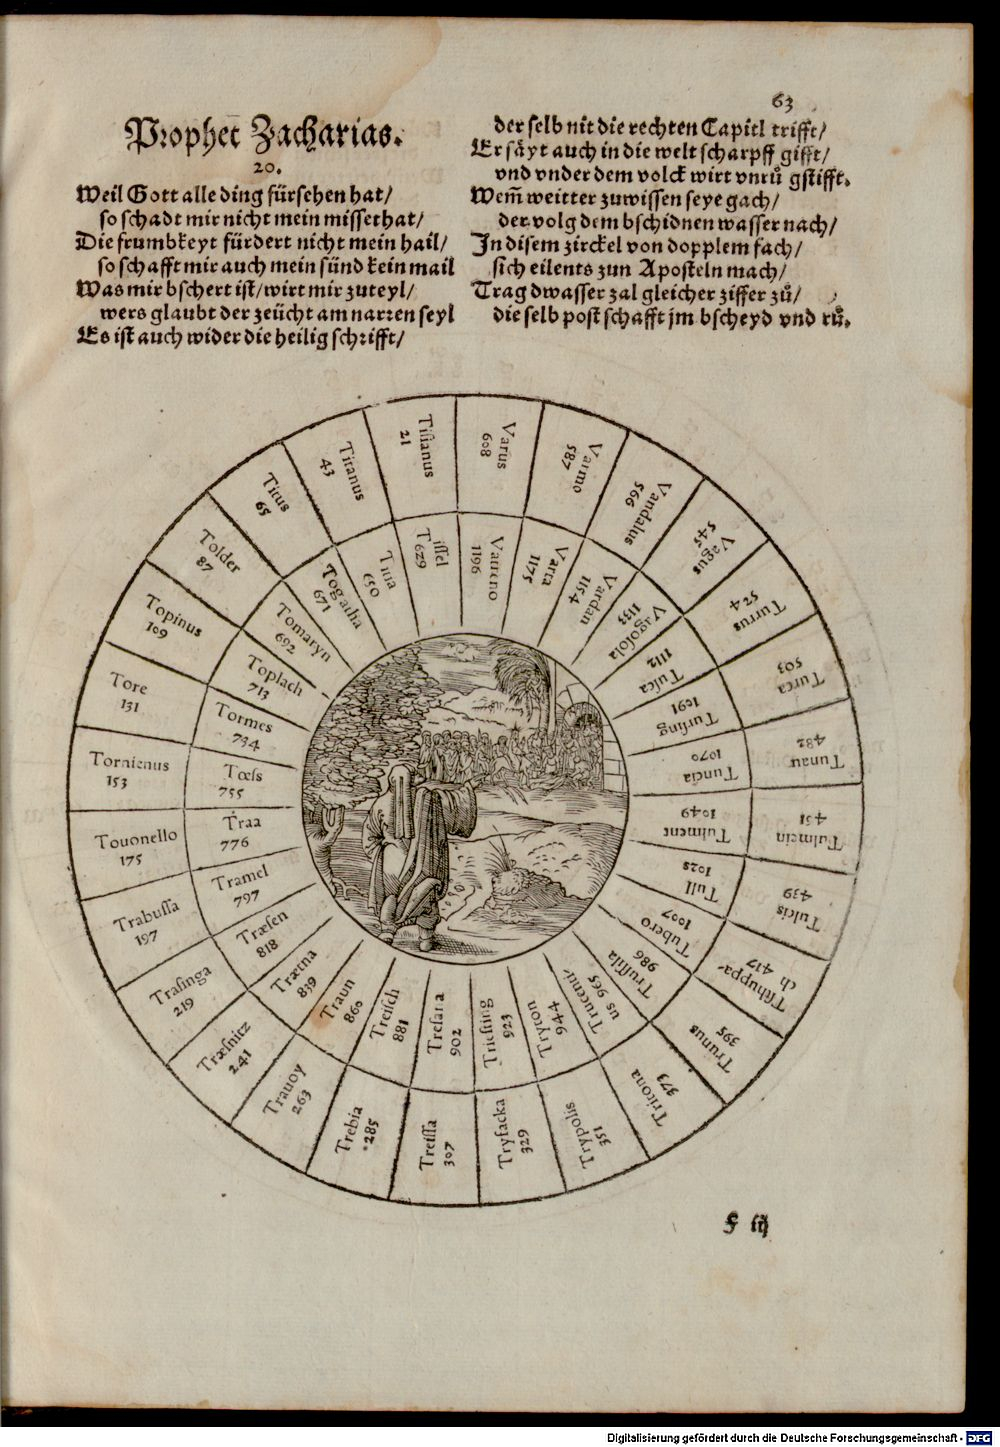 63
Prophet Zacharias.
20.
Weil Gott alle ding fürsehen hat/
so schadt mir nicht mein missethat/
Die frumbkeyt fürdert nicht mein hail/
so schafft mir auch mein sünd kein mail
Was mir bschert ist/wirt mir zuteyl/
wers glaubt der zeücht am narren seyl
Es ist auch wider die heilig schrifft/
der selb nit die rechten Capitl trifft/
Er säyt auch in die welt scharpff gifft/
vnd vnder dem volck wirt vnrů gstifft.
Wem̄ weitter zuwissen seye gach/
der volg dem bschidnen wasser nach/
In disem zirckel von dopplem fach/
sich eilents zun Aposteln mach/
Trag dwasser zal gleicher ziffer zů/
die selb post schafft jm bscheyd vnd rů.
Varus
608
Varmo
587
Vandalus
566
Vagus
545
Turrus
524
Turca
503
Tunau
482
Tulmein
451
Tulcis
439
Tschuppa-
ch 417
Trunus
395
Tritona
373
Trypolis
351
Tryfacka
329
Treissa
307
Trebia
285
Trauoy
263
Træsnitz
241
Trasinga
219
Trabussa
197
Touonello
175
Tornienus
153
Tore
131
Topinus
109
Tolder
87
Titus
65
Titanus
43
Tisianus
21
Vatreno
1196
Varta
1175
Vardan
1154
Vagosola
1133
Tulca
1112
Tursing
1091
Tuncia
1070
Tulment
1049
Tull
1028
Tubero
1007
Trussila
986
Trucenni-
us 965
Tryton
944
Triesting
923
Tresara
902
Treisch
881
Traun
860
Trætna
839
Træsen
818
Tramel
797
Traa
776
Tœss
755
Tormes
734
Toplach
713
Tomaryn
692
Togatha
671
Titia
650
Tissel
629
F iij
Digitalisierung gefördert durch die Deutsche Forschungsgemeinschaft - DFG